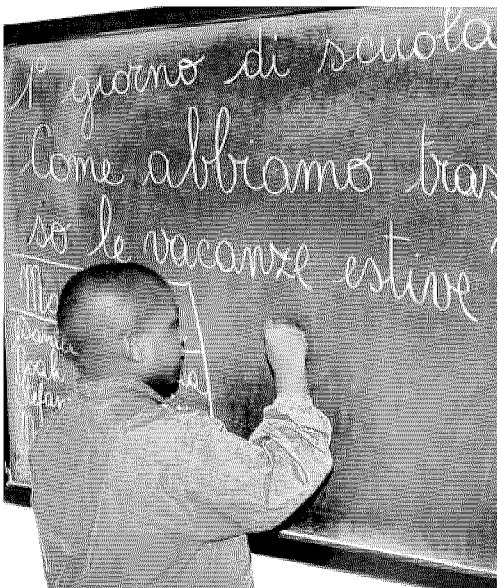 1° giorno di scuola
Come abbiamo tras
so le vacanze estive